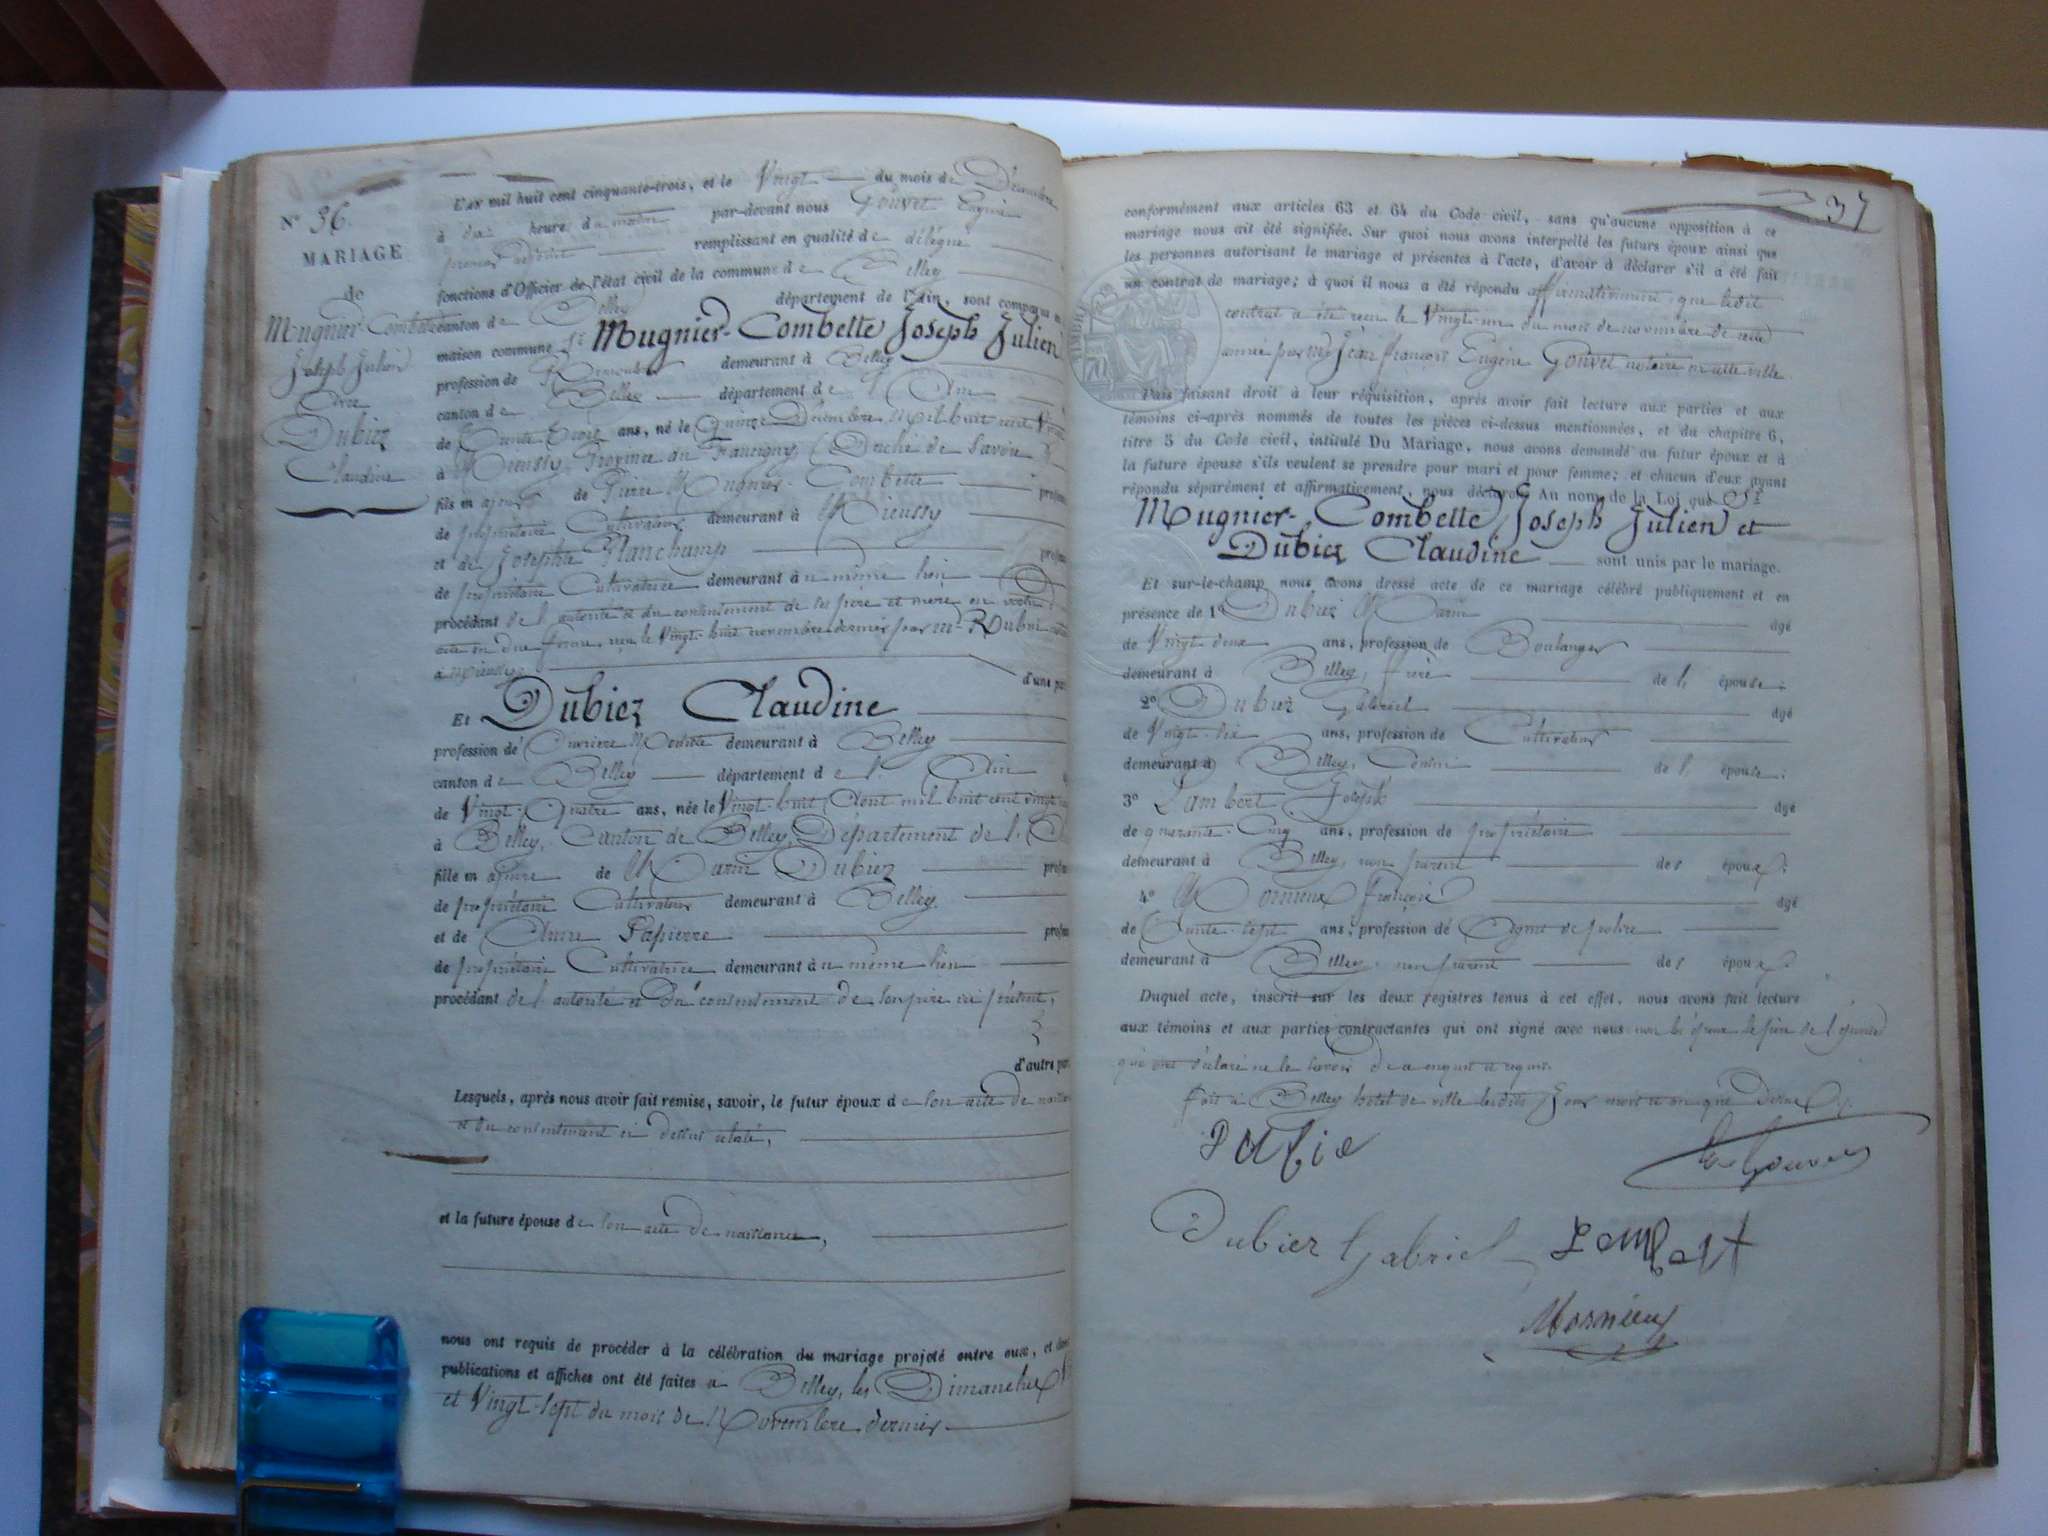 N° 36.
MARIAGE
de
Mugnier-Combette
Joseph Julien
Avec
Dubiez
Claudine
L'AN mil huit cent cinquante-trois, et le Vingt du mois de Décembre
à dix heure du matin par-devant nous Gouvet Eugène
premier adjoint remplissant en qualité de délégué
fonctions d'Officier de l'état civil de la commune de Belley
canton de Belley département de l'Ain, sont comparus en
maison commune Sr Mugnier-Combette Joseph Julien
profession de demeurant à Belley
canton de Belley département de l'Ain
de Trente Trois ans, né le Quinze Décembre Mil huit cent Vingt
à Mieussy Province du Faucigny (Duché de Savoie)
fils majeur de Pierre Mugnier-Combette profess
de propriétaire Cultivateur demeurant à Mieussy
et de Josephte Planchamp profess
de propriétaire Cultivatrice demeurant au même lieu
procédant de l'autorité et du consentement de ses père et mère en vertu d'
acte en due forme, reçu le Vingt-huit novembre dernier par Me Rubin notaire
à Mieussy d'une par
Et Dubiez Claudine
profession de Ouvrière Modiste demeurant à Belley
canton de Belley département de l'Ain
de Vingt-Quatre ans, née le Vingt-huit Aout mil huit cent vingt
à Belley, Canton de Belley, Département de l'A
fille majeure de Marin Dubiez profess
de propriétaire Cultivateur demeurant à Belley
et de Anne Papierre profess
de propriétaire Cultivatrice demeurant au même lieu
procédant de l'autorité et du consentement de son père ici présent,
d'autre par
Lesquels, après nous avoir fait remise, savoir, le futur époux de son acte de naissan
et du consentement ci dessus relaté,
et la future épouse de son acte de naissance,
nous ont requis de procéder à la célébration du mariage projeté entre eux, et dont
publications et affiches ont été faites à Belley, les Dimanches
et Vingt-sept du mois de Novembre dernier
37
conformément aux articles 63 et 64 du Code civil, sans qu'aucune opposition à ce
mariage nous ait été signifiée. Sur quoi nous avons interpellé les futurs époux ainsi que
les personnes autorisant le mariage et présentes à l'acte, d'avoir à déclarer s'il a été fait
un contrat de mariage; à quoi il nous a été répondu affirmativement, que ledit
contrat a été reçu le Vingt-un du mois de novembre de cette
année par Me Jean françois Eugène Gouvet notaire en cette ville.
Puis faisant droit à leur réquisition, après avoir fait lecture aux parties et aux
témoins ci-après nommés de toutes les pièces ci-dessus mentionnées, et du chapitre 6,
titre 5 du Code civil, intitulé Du Mariage, nous avons demandé au futur époux et à
la future épouse s'ils veulent se prendre pour mari et pour femme; et chacun d'eux ayant
répondu séparément et affirmativement, nous déclarons Au nom de la Loi que Sr
Mugnier-Combette Joseph Julien et
Dubiez Claudine sont unis par le mariage.
Et sur-le-champ nous avons dressé acte de ce mariage célébré publiquement et en
présence de 1° Dubiez Marin âgé
de Vingt deux ans, profession de Boulanger
demeurant à Belley, frère de l'épouse;
2° Dubiez Gabriel âgé
de Vingt-six ans, profession de Cultivateur
demeurant à Belley, Cousin de l'épouse;
3° Lambert Joseph âgé
de quarante-Cinq ans, profession de propriétaire
demeurant à Belley, non parent des époux;
4° Mornieux François âgé
de Trente-sept ans, profession de Agent de police
demeurant à Belley non parent des époux
Duquel acte, inscrit sur les deux registres tenus à cet effet, nous avons fait lecture
aux témoins et aux parties contractantes qui ont signé avec nous non les époux le père de l'épouse
qui ont déclaré ne le savoir de ce enquis et requis.
fait à Belley hotel de ville lesdits Jour mois et an que dessus
Dubie
E. Gouvet
Dubiez Gabriel
Lambert
Mornieux